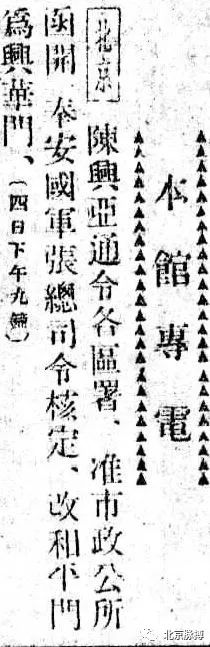 本館專電
北京 陳興亞通令各區署、准市政公所
函開 奉安國軍張總司令核定、改和平門
爲興華門、（四日下午九鐘）
北京脈搏